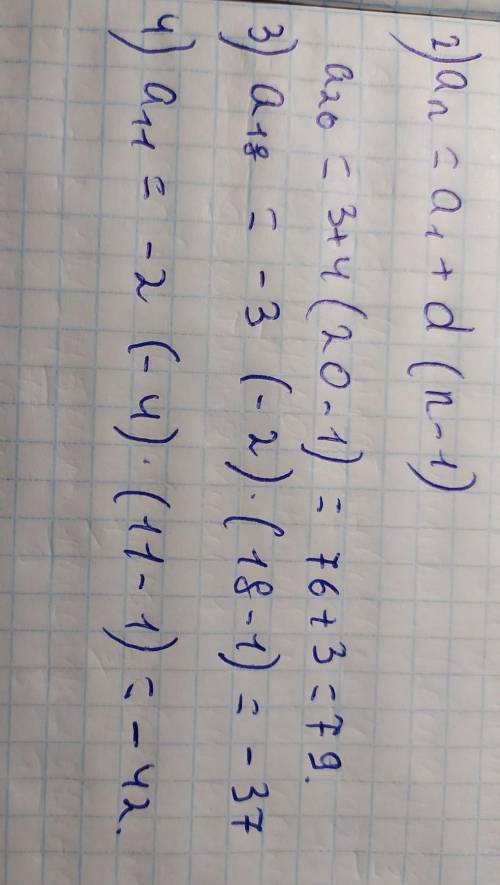 2) aₙ = a₁ + d (n-1)
a₂₀ = 3+4 (20-1) = 76+3 = 79.
3) a₁₈ = -3 (-2)·(18-1) = -37
4) a₁₁ = -2 (-4)·(11-1) = -42.